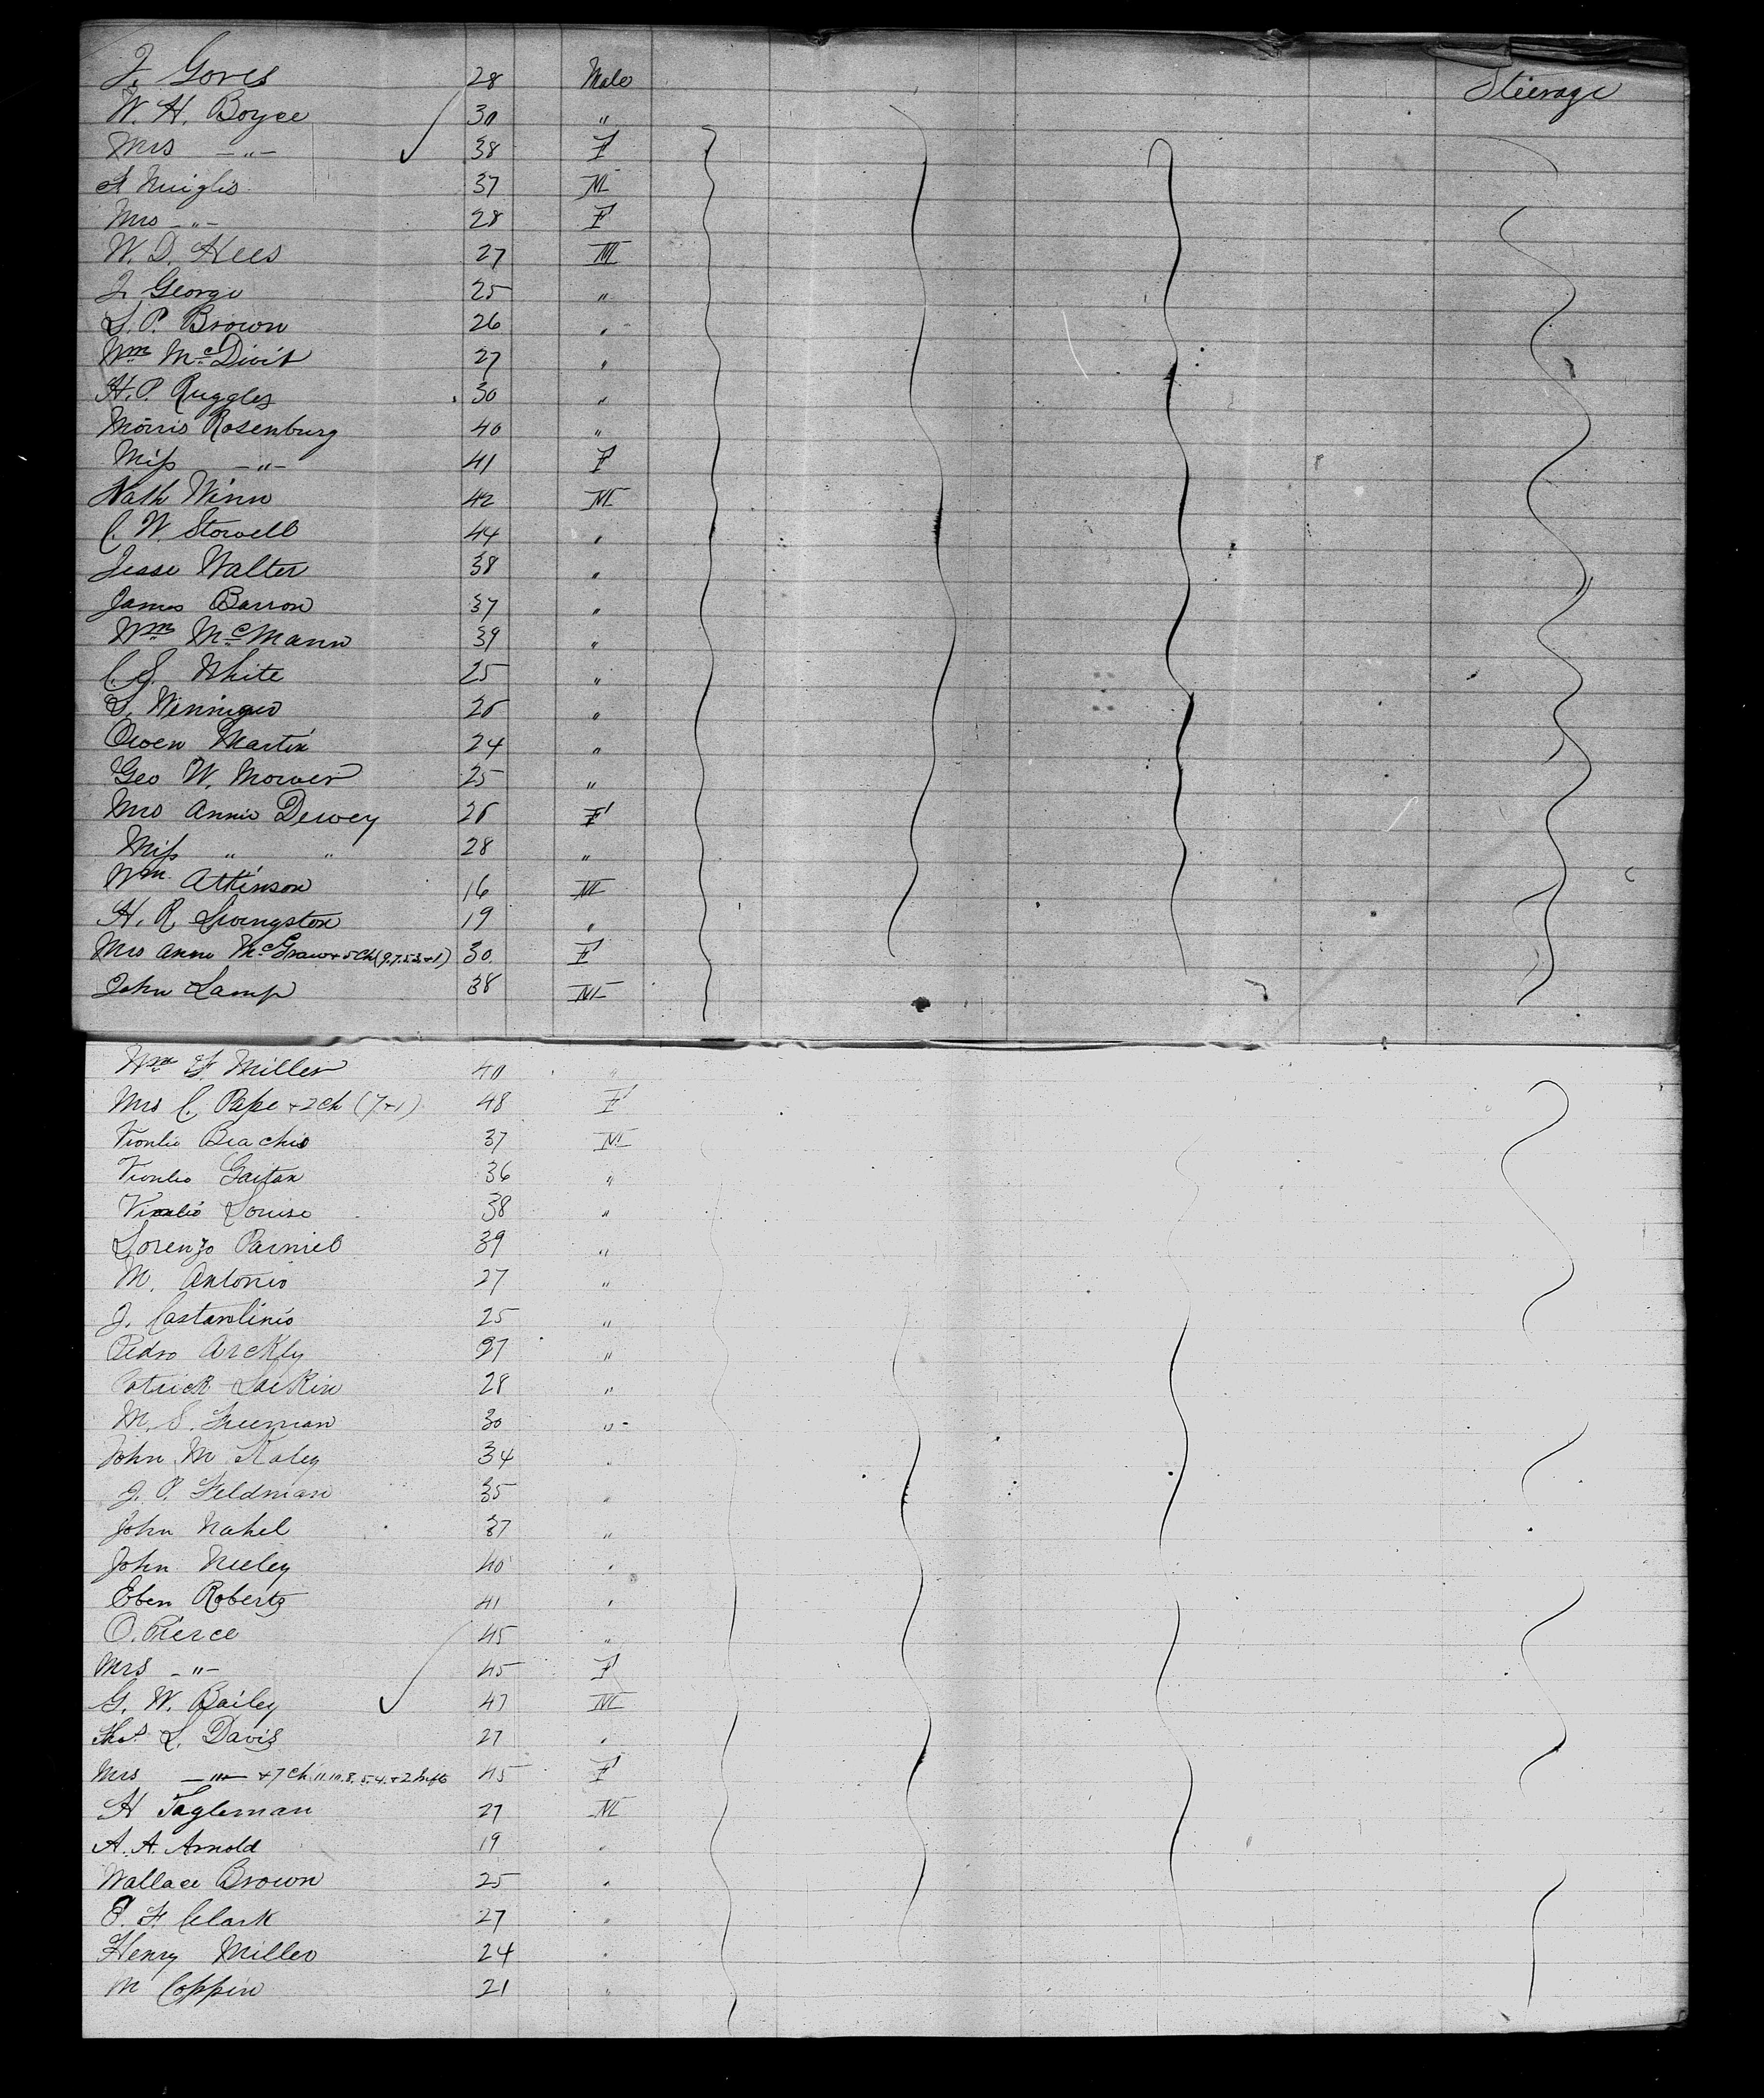 J. Gores 28 Male Steerage
W. H. Boyce 30 "
Mrs —"— 38 F
A 37 M
Mrs —"— 28 F
W. D. Hees 27 M
J. George 25 "
S. P. Brown 26 "
Wm McDivit 27 "
H. P. Ruggles 30 "
Morris Rosenburg 40 "
Miss —"— 41 F
Nath Winn 42 M
C. W. Stowell 44 "
Jesse Walter 38 "
James Barron 37 "
Wm McMann 39 "
C. S. White 25 "
"
Owen Martin 24 "
Geo W. Mower 25 "
Mrs Annie Dewey 26 F
Miss " " 28 "
Wm Atkinson 16 M
H. R. Livingston 19 "
Mrs Anne McGraw + 5 Ch (9.7.5.3.+1) 30 F
John Lamp 38 M
Wm F. Miller 40 "
Mrs C. Pape + 2 Ch (7+1) 48 F
Vionlio Biachio 37 M
Vionlio Gaitan 36 "
Louise 38 "
Lorenzo Parniel 39 "
M. Antonio 27 "
J. Castantinio 25 "
Pedro Arckly 27 "
Patrick Larkin 28 "
M. S. Freeman 30 "
John M Kaley 34 "
J. P. Feldman 35 "
John Nahel 37 "
John Neeley 40 "
Eben Roberts 41 "
O. Pierce 45 "
Mrs —"— 45 F
G. W. Bailey 47 M
Thos. L. Davis 27 "
Mrs —"— + 7 Ch 11.10.8.5.4.+2 Infts 45 F
H Tagleman 27 M
A. A. Arnold 19 "
Wallace Brown 25 "
P. F. Clark 27 "
Henry Miller 24 "
M Coppin 21 "